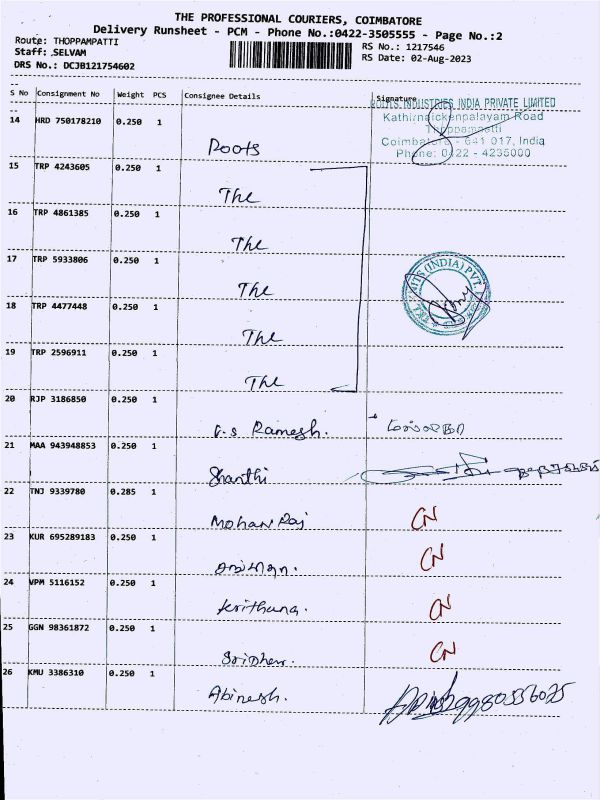 THE PROFESSIONAL COURIERS, COIMBATORE
Delivery Runsheet - PCM - Phone No.:0422-3505555 - Page No.:2
Route: THOPPAMPATTI
RS No.: 1217546
Staff: SELVAM
RS Date: 02-Aug-2023
DRS No.: DCJB121754602
S No Consignment No Weight PCS Consignee Details Signature
ROOTS INDUSTRIES INDIA PRIVATE LIMITED
Kathirnaickenpalayam Road
Thoppampatti
Coimbatore - 641 017, India
Phone: 0422 - 4235000
14 HRD 750178210 0.250 1
Roots
15 TRP 4243605 0.250 1
The
16 TRP 4861385 0.250 1
The
17 TRP 5933806 0.250 1
The
(INDIA) PVT.
18 TRP 4477448 0.250 1
The
19 TRP 2596911 0.250 1
The
20 RJP 3186850 0.250 1
V.S Ramesh.
21 MAA 943948853 0.250 1
Shanthi
22 TNJ 9339780 0.285 1
Mohan Raj CN
23 KUR 695289183 0.250 1
CN
24 VPM 5116152 0.250 1
Krithana. CN
25 GGN 98361872 0.250 1
Sridher. CN
26 KMU 3386310 0.250 1
Abinesh. 9980556025